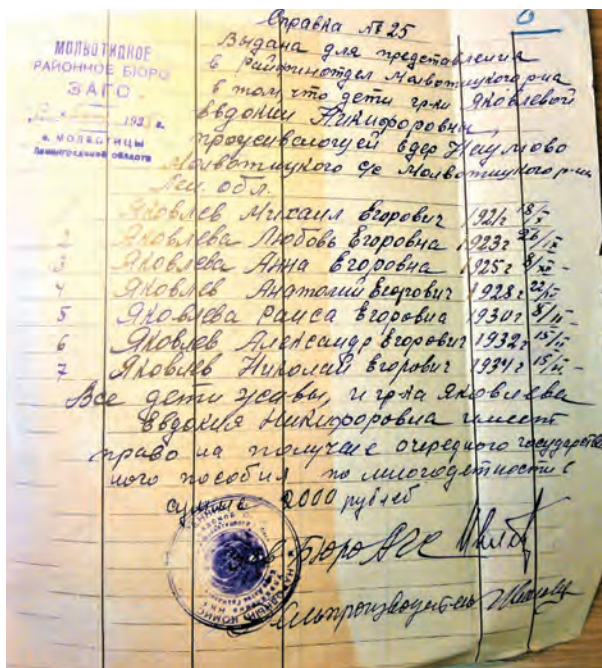 Справка № 25
6
МОЛВОТИЦКОЕ
РАЙОННОЕ БЮРО
ЗАГС
193 г.
с. МОЛВОТИЦЫ
Ленинградской области
Выдана для представления
в Райфинотдел Молвотицкого р-на
в том что дети гр-ки Яковлевой
Евдокии Никифоровны,
в дер Наумово
Молвотицкого с/с Молвотицкого р-на
Лен. обл.
Яковлев Михаил Егорович 1921г 18/
2 Яковлева Любовь Егоровна 1923г 26/IX
3 Яковлева Анна Егоровна 1925г 8/XII -
4 Яковлев Анатолий Егорович 1928г 22/
5 Яковлева Раиса Егоровна 1930г 8/II -
6 Яковлев Александр Егорович 1932г 15/
7 Яковлев Николай Егорович 1934г 15/
Все дети живы, и гр-ка Яковлева
Евдокия Никифоровна имеет
право на получение очередного государстве
ного пособия по многодетности в
сумме 2000 рублей
Зав Бюро ЗАГС
Делопроизводитель